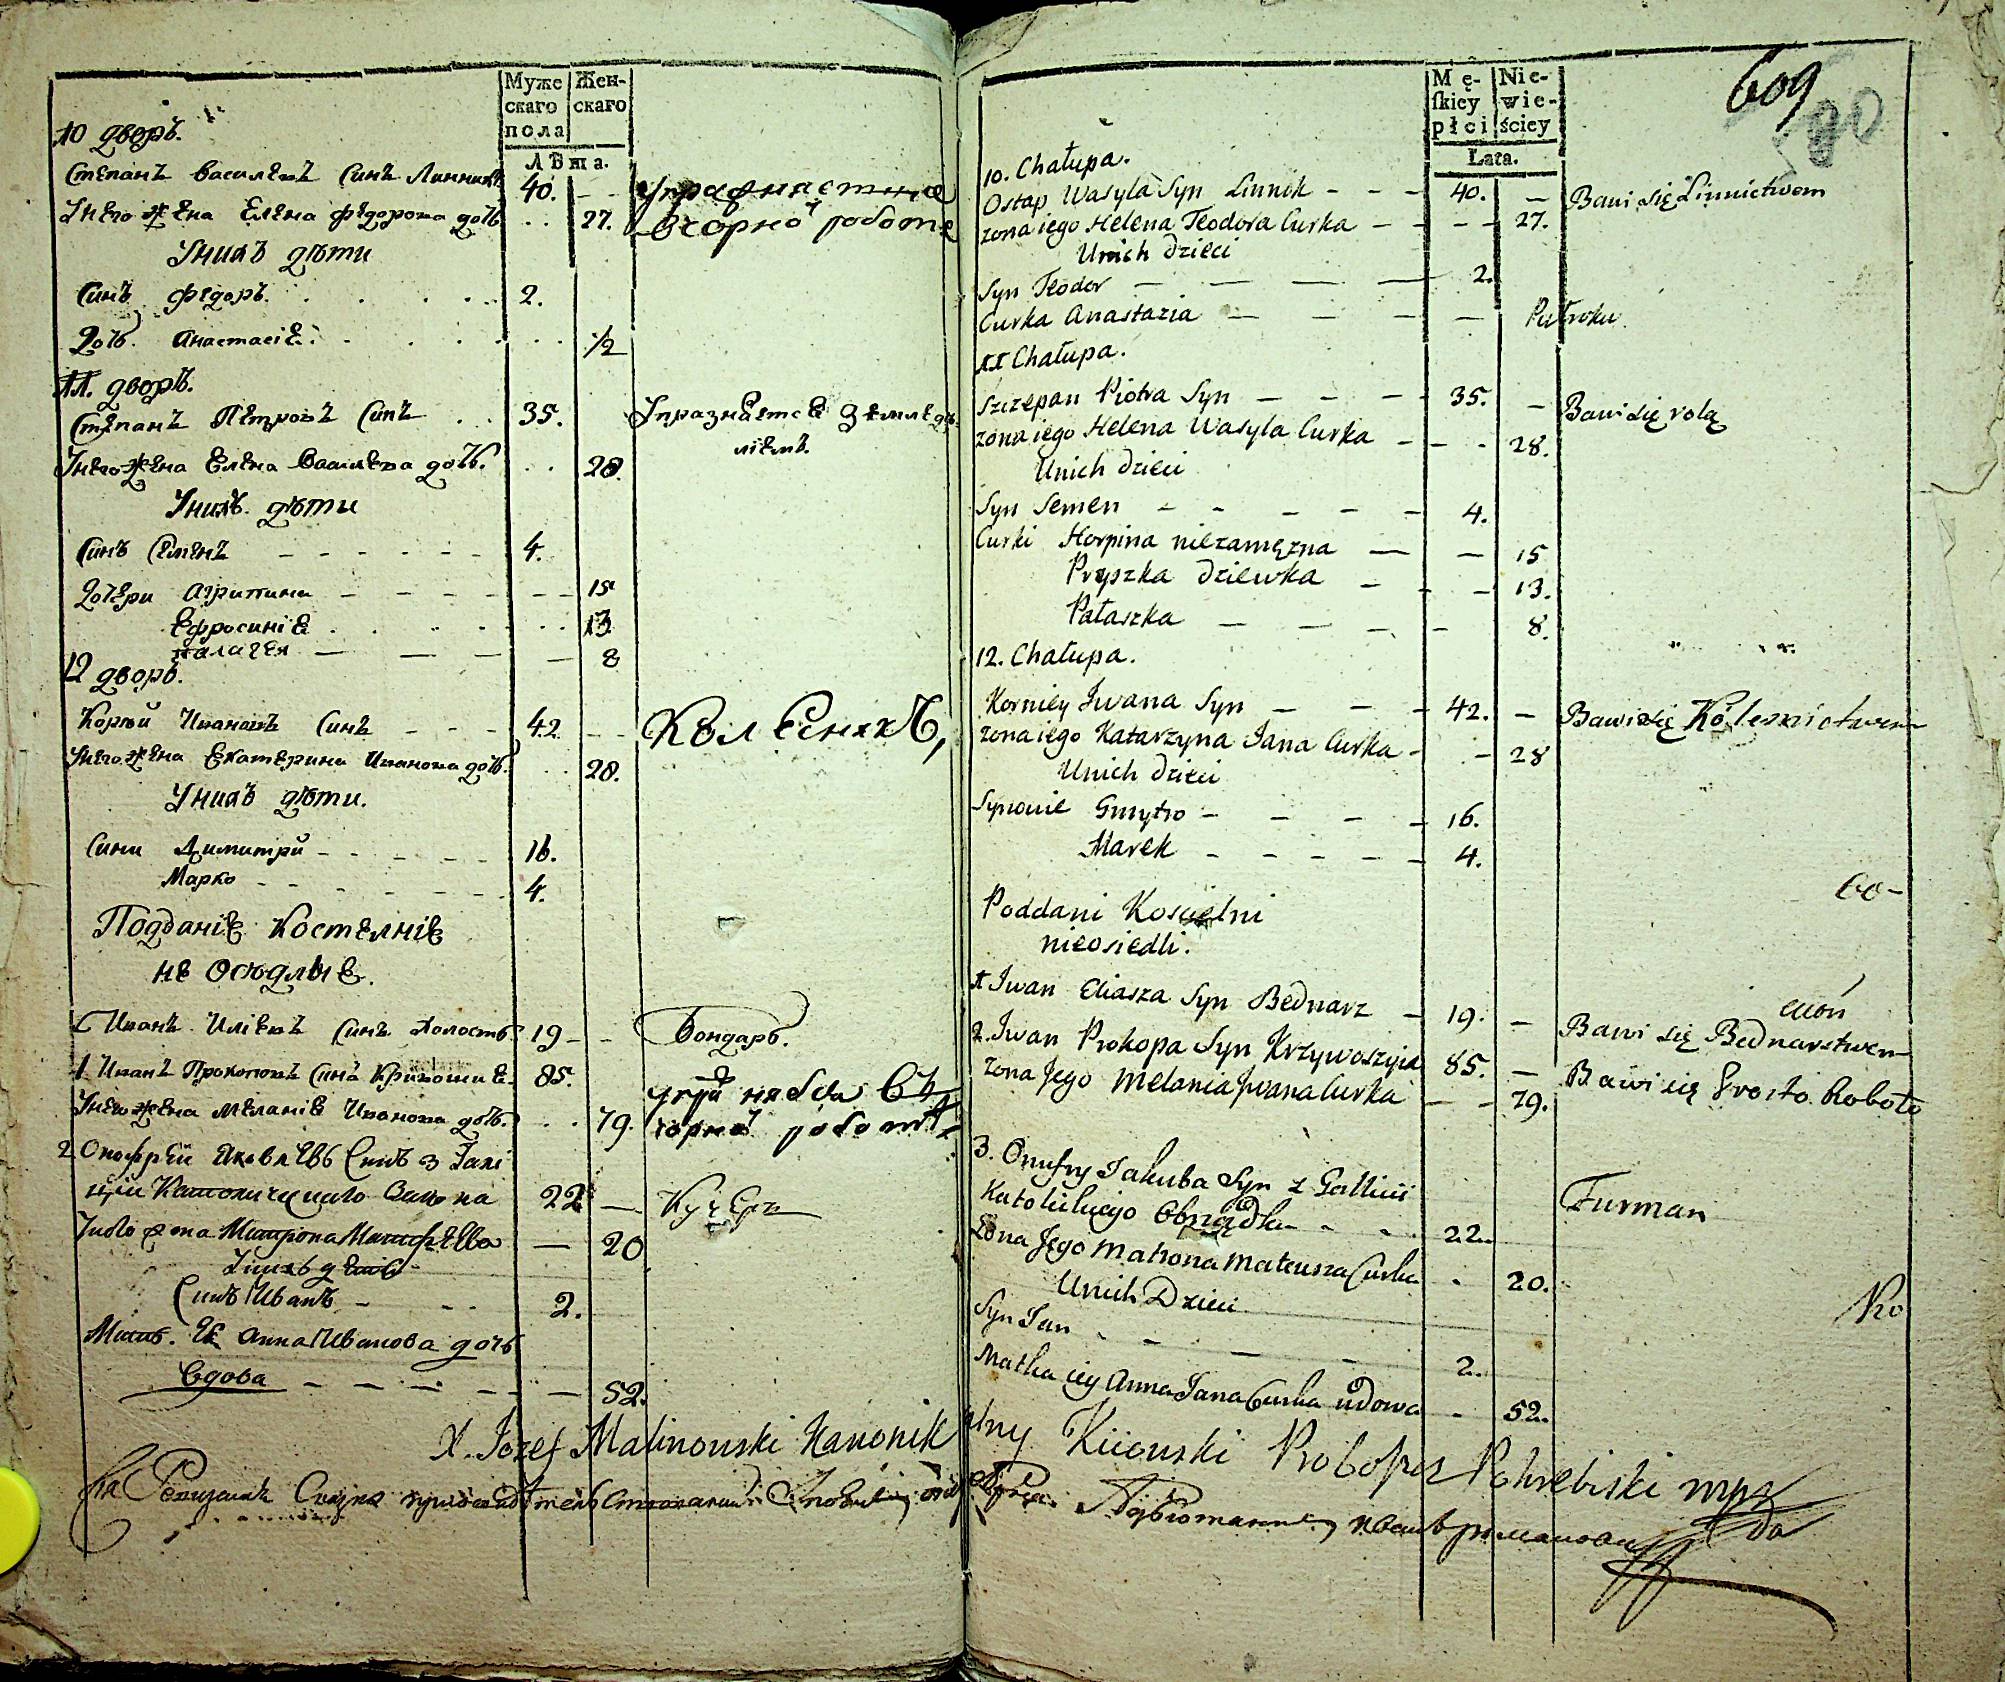 Муже
скаго
пола
Жен-
скаго
Лѣта.
10 дворъ.
Степанъ Васильевъ синъ Линникъ 40. - -
У него жена Елена Федорова дочь . . 27.
Упражняетца
в чорной роботе
У нихъ дѣти
Синъ Федоръ . . . . . 2.
Дочь Анастасіѣ . . . . . 1/2
11. дворъ.
Степанъ Петровъ Синъ . . 35.
Упразнѣется Земледѣ
ліемъ.
У него жена Елена Васильева дочь. . . 28.
У нихъ дѣти
Синъ Семенъ - - - - - - 4.
Дочери Агрипина - - - - - 15
Ефросиніѣ . . . . . 13
Палагея — — — — 8
12 дворъ.
Корней Ивановъ Синъ - - - 42 - -
Колесникъ,
У него жена Екатерина Иванова дочь. . . 28.
У нихъ дѣти.
Сини Димитрій - - - - - 16.
Марко - - - - - - 4.
Подданіе Костелніе
не Осѣдліе.
Иванъ Иліевъ Синъ Холостъ 19 - -
Бондаръ.
1 Иванъ Прокоповъ Синъ 85.
У него жена Меланіѣ Иванова дочь. . . 79.
чорной роботѣ
2 Онофрей Яковлевъ Синъ з Галі
ціи 22 —
Кучеръ
жена Матрона — 20
У нихъ дети
Синъ Иванъ - - - 2.
Анна Иванова дочь
Вдова — — — — — 52.
X. Jozef Malinowski Kanonik
Mę-
ſkiey
płci
Nie-
wie-
ściey
Lata.
609
80
10. Chałupa.
Ostap Wasyla Syn Linnik - - - 40. —
Bawi się Linnictwem
zona iego Helena Teodora Curka - - - - 27.
Unich Dzieci
Syn Teodor — — — — 2.
Curka Anastazia — — — — — Puł roku.
11 Chałupa.
Szczepan Piotra Syn — — — - 35. —
Bawi się rolą
zona iego Helena Wasyla Curka - - - 28.
Unich Dzieci
Syn Semen - - - - - 4.
Curki Horpina niezamęzna — — 15
Pryszka Dziewka - - - 13.
Pałaszka — — — - 8.
12. Chałupa.
Korniey Iwana Syn — — - 42. —
Bawi się Kolesnictwem
zona iego Katarzyna Jana Curka - - 28
Unich Dzieci
Synowie Gmytro - - - - 16.
Marek - - - - - 4.
Poddani Koscielni
nieosiedli.
1 Iwan Eliasza Syn Bednarz - 19. —
Bawi się Bednarstwem
2. Iwan Prokopa Syn Krzywoszyia 85. —
Bawi się Prosto Robotą
zona Jego Melania Jwana Curka — - 79.
3. Onufry Jakuba Syn z Gallicii
Katolickiego Obrządku - - . 22.
Furman
Zona Jego Matrona Mateusza Curka . 20.
Unich Dzieci
Syn Jan - — — - 2.
Matka iey Anna Jana Curka wdowa - 52.
Kiiowski Proboszcz Pohrebiski mpr